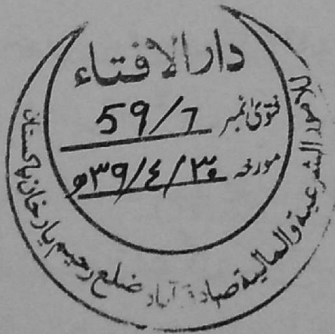 دارالافتاء
فتویٰ نمبر 59/7
مورخہ ۳۹/٤/۳۰ھ
الشرعیة والمالیة صادق آباد ضلع رحیم یار خان پاکستان